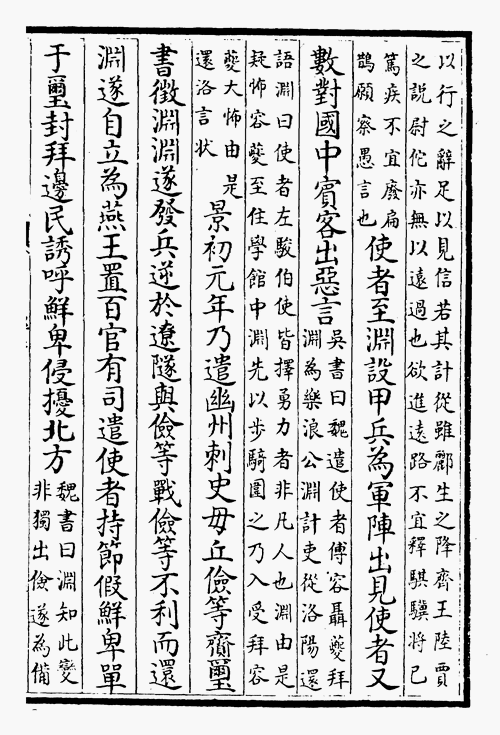 以行之辭足以見信若其計從雖酈生之降齊王陸賈
之説尉佗亦無以遠過也欲進遠路不宜釋騏驥將已
篤疾不宜廢扁
鵲願察愚言也
使者至淵設甲兵為軍陣出見使者又
數對國中賓客出惡言
吳書曰魏遣使者傅容聶夔拜
淵為樂浪公淵計吏從洛陽還
語淵曰使者左駿伯使皆擇勇力者非凡人也淵由是
疑怖容夔至住學館中淵先以步騎圍之乃入受拜容
夔大怖由是
還洛言狀
景初元年乃遣幽州刺史毋丘儉等齎璽
書徵淵淵遂發兵逆於遼隧與儉等戰儉等不利而還
淵遂自立為燕王置百官有司遣使者持節假鮮卑單
于璽封拜邊民誘呼鮮卑侵擾北方
魏書曰淵知此變
非獨出儉遂為備